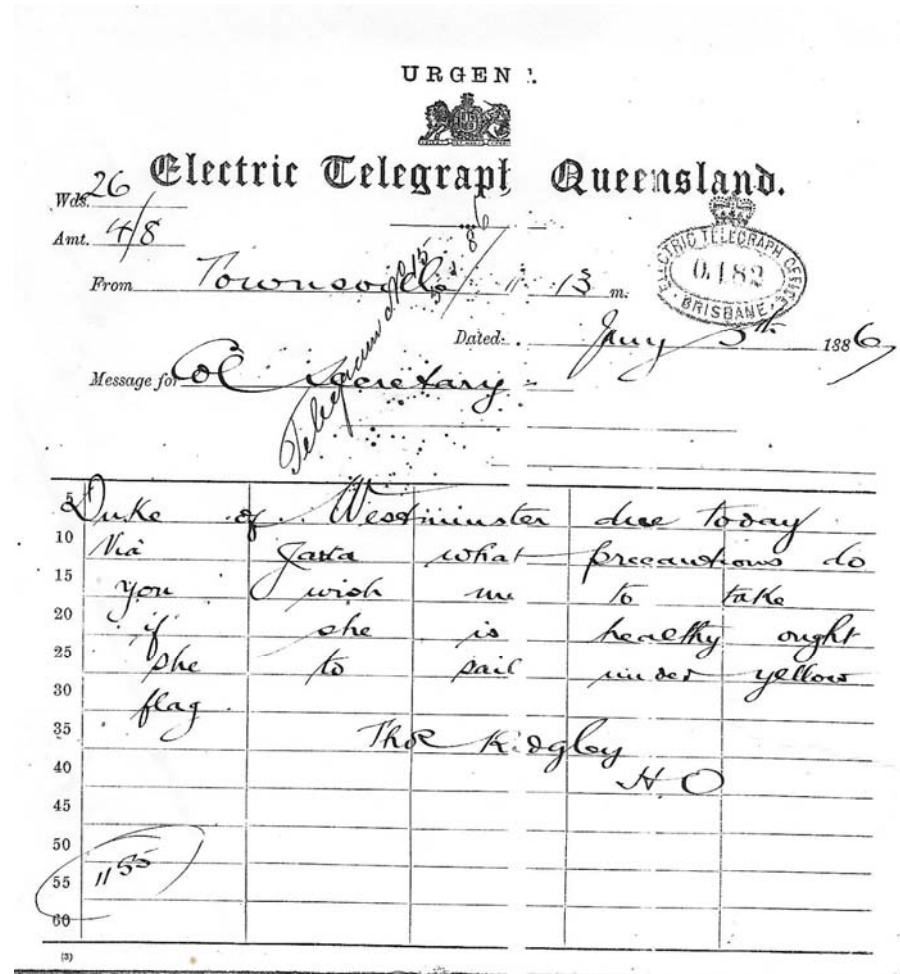 URGENT.
Electric Telegraph Queensland.
Wds. 26
Amt. 4/8
ELECTRIC TELEGRAPH OFFICE
0.182
BRISBANE
From Townsville 11 13 m.
Dated: Jany 5th 1886
Message for Col Secretary
Duke of Westminster due today
5
10 Via Java what precautions do
15 you wish me to take
20 if she is healthy ought
25 she to sail under yellow
30 flag
35 Thos Ridgley
40 H. O
45
50
55 1155
60
(3)